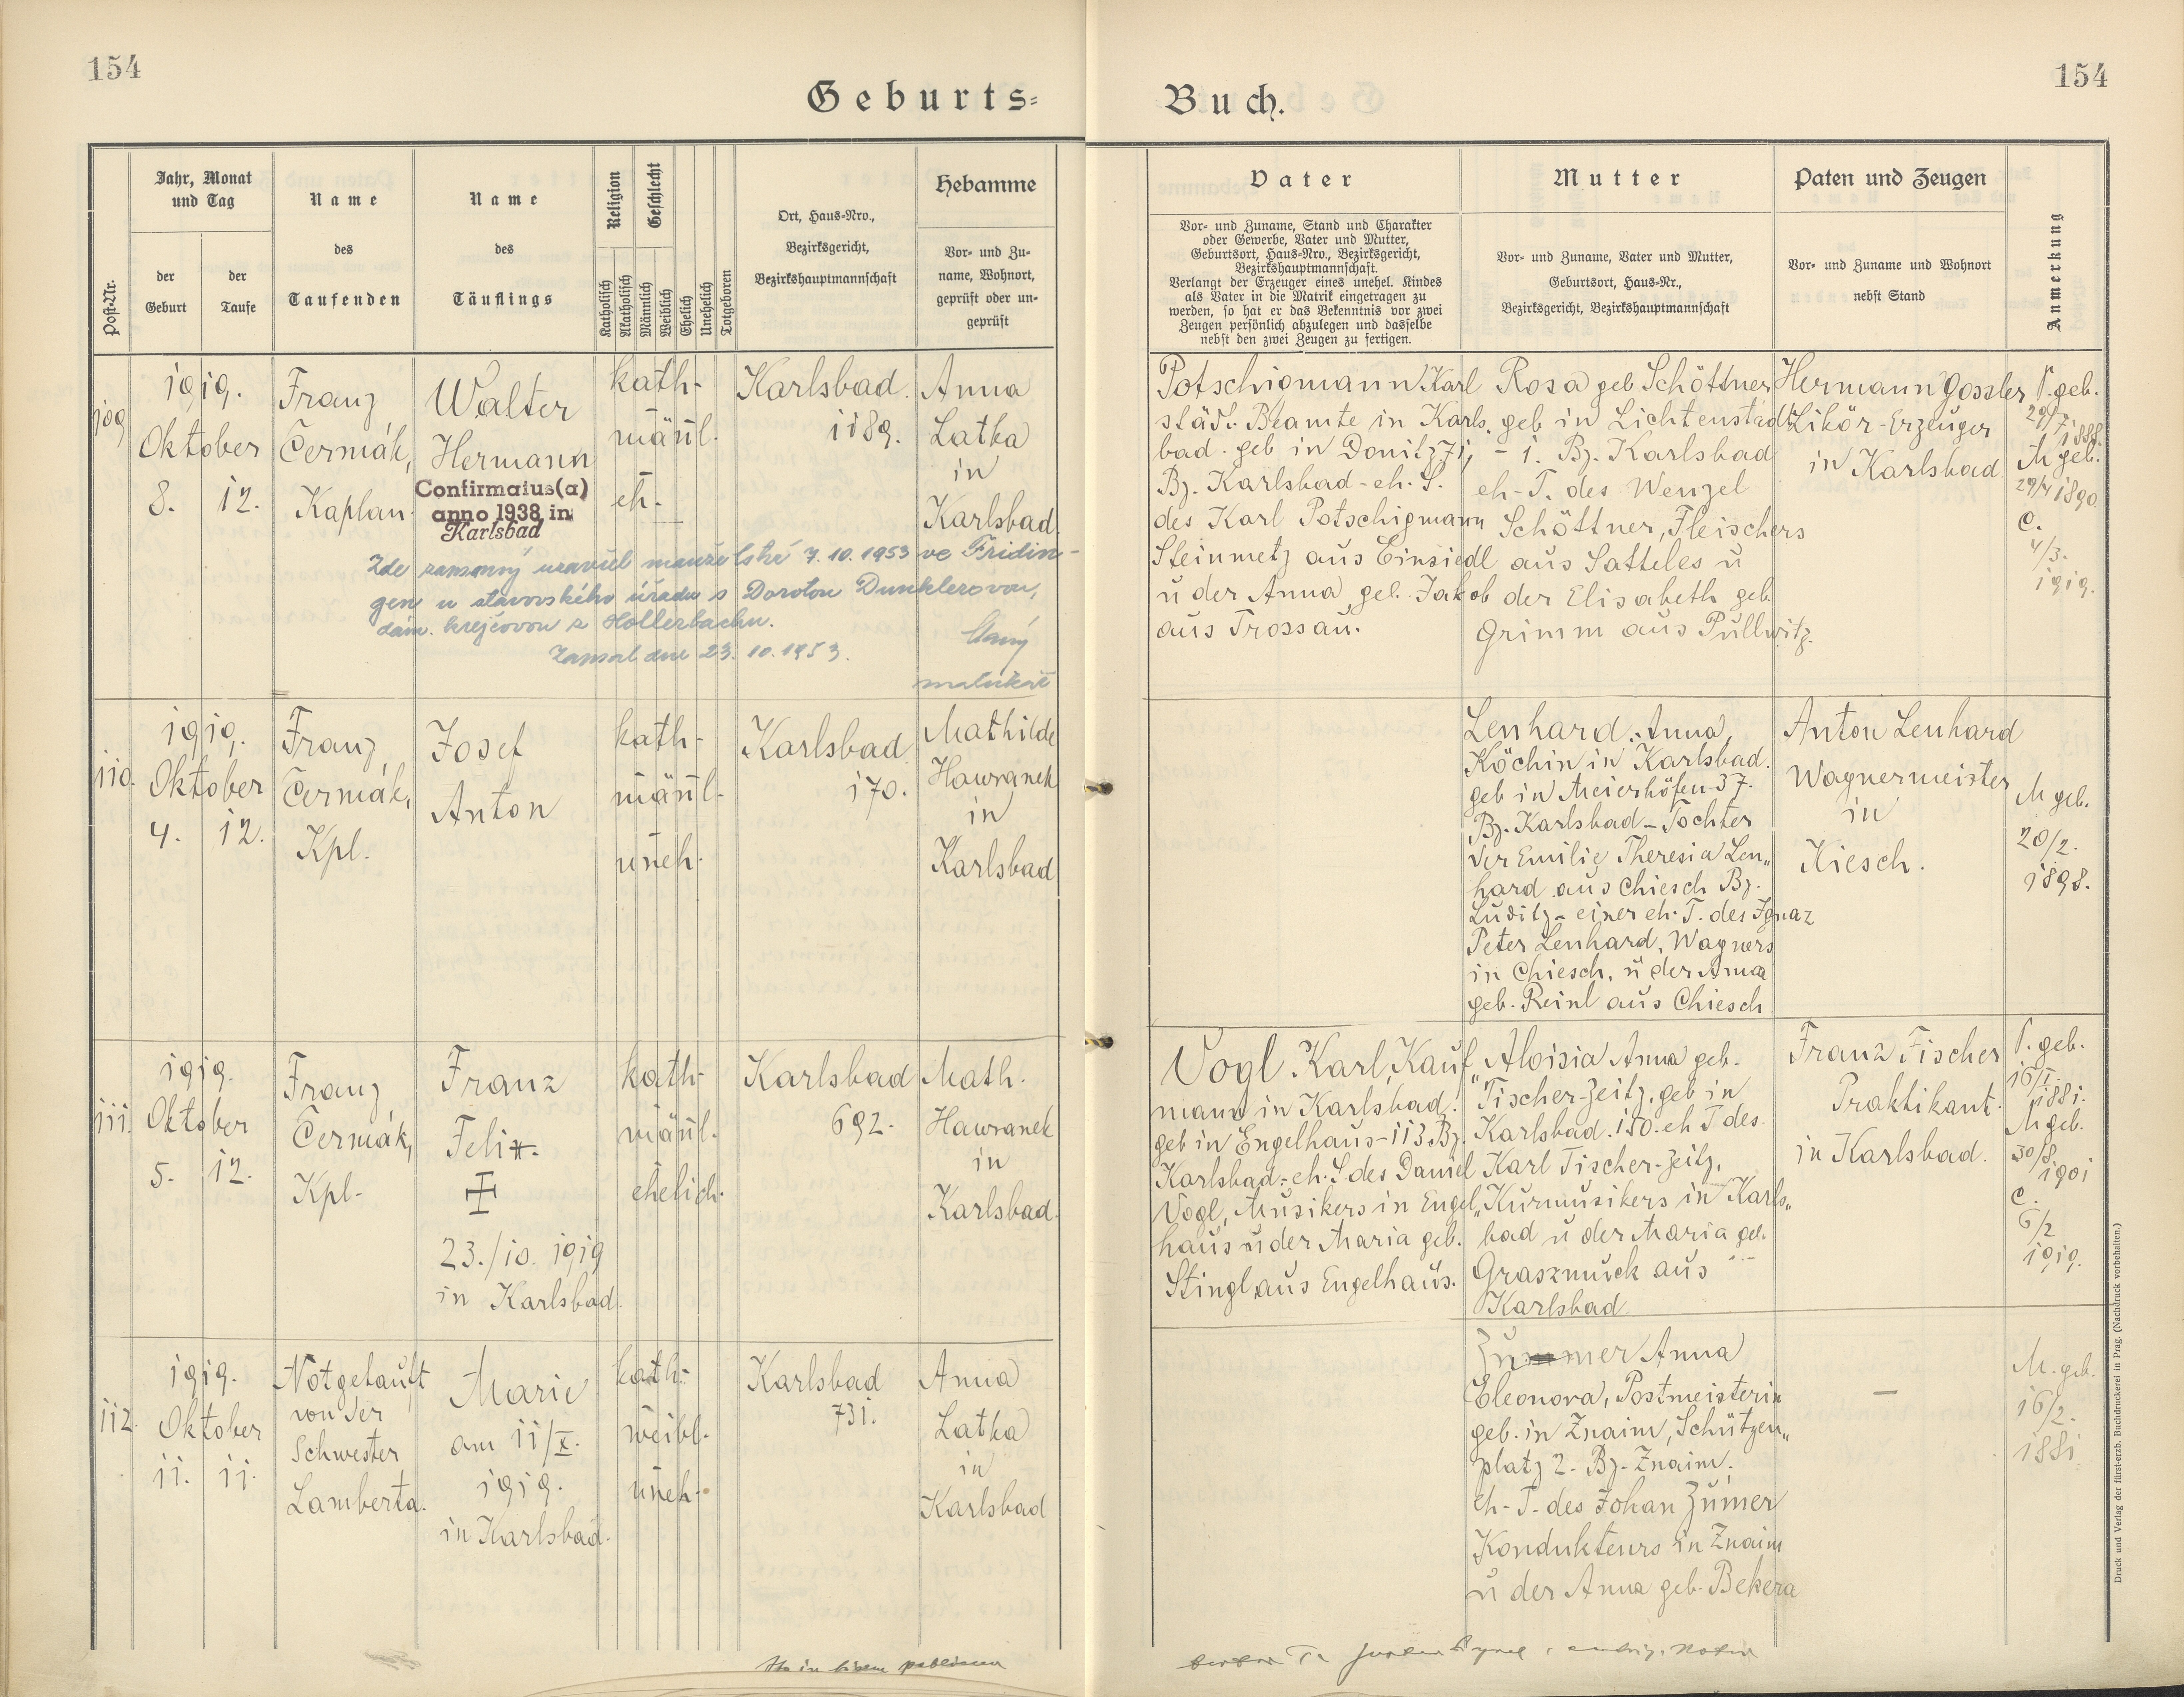 154
Geburts=
Buch.
154
Post-Nr.
Jahr, Monat
und Tag
der
Geburt
der
Taufe
Name
des
Taufenden
Name
des
Täuflings
Religion
Geschlecht
Katholisch
Akatholisch
Männlich
Weiblich
Ehelich
Unehelich
Totgeboren
Ort, Haus-Nro.,
Bezirksgericht,
Bezirkshauptmannschaft
Hebamme
Vor- und Zu-
name, Wohnort,
geprüft oder un-
geprüft
Vater
Vor- und Zuname, Stand und Charakter
oder Gewerbe, Vater und Mutter,
Geburtsort, Haus-Nro., Bezirksgericht,
Bezirkshauptmannschaft.
Verlangt der Erzeuger eines unehel. Kindes
als Vater in die Matrik eingetragen zu
werden, so hat er das Bekenntnis vor zwei
Zeugen persönlich abzulegen und dasselbe
nebst den zwei Zeugen zu fertigen.
Mutter
Vor- und Zuname, Vater und Mutter,
Geburtsort, Haus-Nr.,
Bezirksgericht, Bezirkshauptmannschaft
Paten und Zeugen
Vor- und Zuname und Wohnort
nebst Stand
Anmerkung
109
1919.
Oktober
8. 12.
Franz
Čermák,
Kaplan.
Walter
Hermann
Confirmatus(a)
anno 1938 in
Karlsbad
kath-
männl.
eh.
Karlsbad.
1189.
Anna
Latka
in
Karlsbad
Zde zapsaný uzavřel manželství 7.10.1953 ve Fridin-
gen u stavovského úřadu s Dorotou Dunklerovou,
dám. krejčovou z Hollerbachu.
Zapsal dne 23.10.1953.
matrikář
Potschigmann Karl
städt. Beamte in Karls-
bad. geb in Donitz 71,
Bz. Karlsbad - eh. S.
des Karl Potschigmann
Steinmetz aus Einsiedl
u der Anna geb. Jakob
aus Trossau.
Rosa geb Schöttner
geb in Lichtenstadt
- 1. Bz. Karlsbad
eh-T. des Wenzel
Schöttner, Fleischers
aus Satteles u
der Elisabeth geb.
Grimm aus Pullwitz.
Hermann Gossler
Likör-Erzeuger
in Karlsbad.
V. geb.
29/7 1888.
M geb.
29/4 1890
C.
4/3.
1919.
110.
1919.
Oktober
4. 12.
Franz
Čermák,
Kpl.
Josef
Anton
kath-
männl.
uneh.
Karlsbad
170.
Mathilde
Hawranek
in
Karlsbad
Lenhard Anna,
Köchin in Karlsbad.
geb in Meierhöfen 37.
Bz. Karlsbad - Tochter
der Emilie Theresia Len„
hard aus Chiesch Bz.
Luditz - einer eh. T. des Ignaz
Peter Lenhard, Wagners
in Chiesch, u der Anna
geb. Reinl aus Chiesch
Anton Lenhard
Wagnermeister
in
Kiesch.
M geb.
20/2.
1898.
111.
1919.
Oktober
5. 12.
Franz
Čermák,
Kpl-
Franz
Felix.
23./10. 1919
in Karlsbad.
kath-
männl.
ehelich.
Karlsbad
692.
Math.
Hawranek
in
Karlsbad.
Vogl Karl, Kauf„
mann in Karlsbad.
geb in Engelhaus - 113 Bz.
Karlsbad - eh. S. des Daniel
Vogl, Musikers in Engel„
haus u der Maria geb.
Stingl aus Engelhaus.
Aloisia Anna geb.
Fischer-Zeitz, geb in
Karlsbad. 150. eh T des
Karl Fischer-Zeitz,
Kurmusikers in Karls„
bad u der Maria geb.
Grasznuck aus
Karlsbad.
Franz Fischer
Praktikant.
in Karlsbad.
V. geb.
16/I. 1881.
M geb.
30/8. 1901
C.
6/2
1919.
112.
1919.
Oktober
11. 11.
Notgetauft
von der
Schwester
Lamberta.
Marie
am 11/X.
1919.
in Karlsbad.
kath-
weibl.
uneh.
Karlsbad
731.
Anna
Latka
in
Karlsbad
Zummer Anna
Eleonora, Postmeisterin
geb. in Znaim, Schützen„
platz 2. Bz. Znaim.
eh-T. des Johan Zumer
Kondukteurs in Znaim
u der Anna geb. Bekera
—
M. geb.
16/2.
1881.
Druck und Verlag der fürst-erzb. Buchdruckerei in Prag. (Nachdruck vorbehalten.)